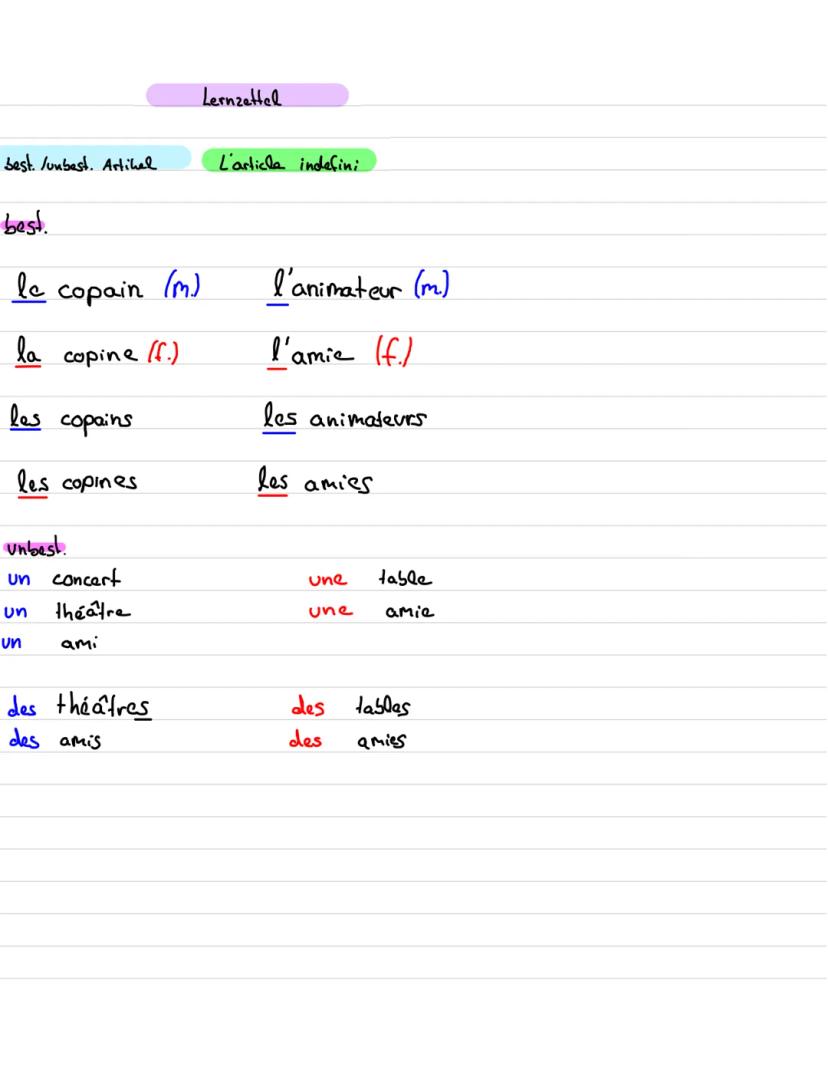 Lernzettel
best. /unbest. Artikel L'article indefini
best.
le copain (m.) l'animateur (m.)
la copine (f.) l'amie (f.)
les copains les animateurs
les copines les amies
unbest.
un concert une table
un théâtre une amie
un ami
des théâtres des tables
des amis des amies